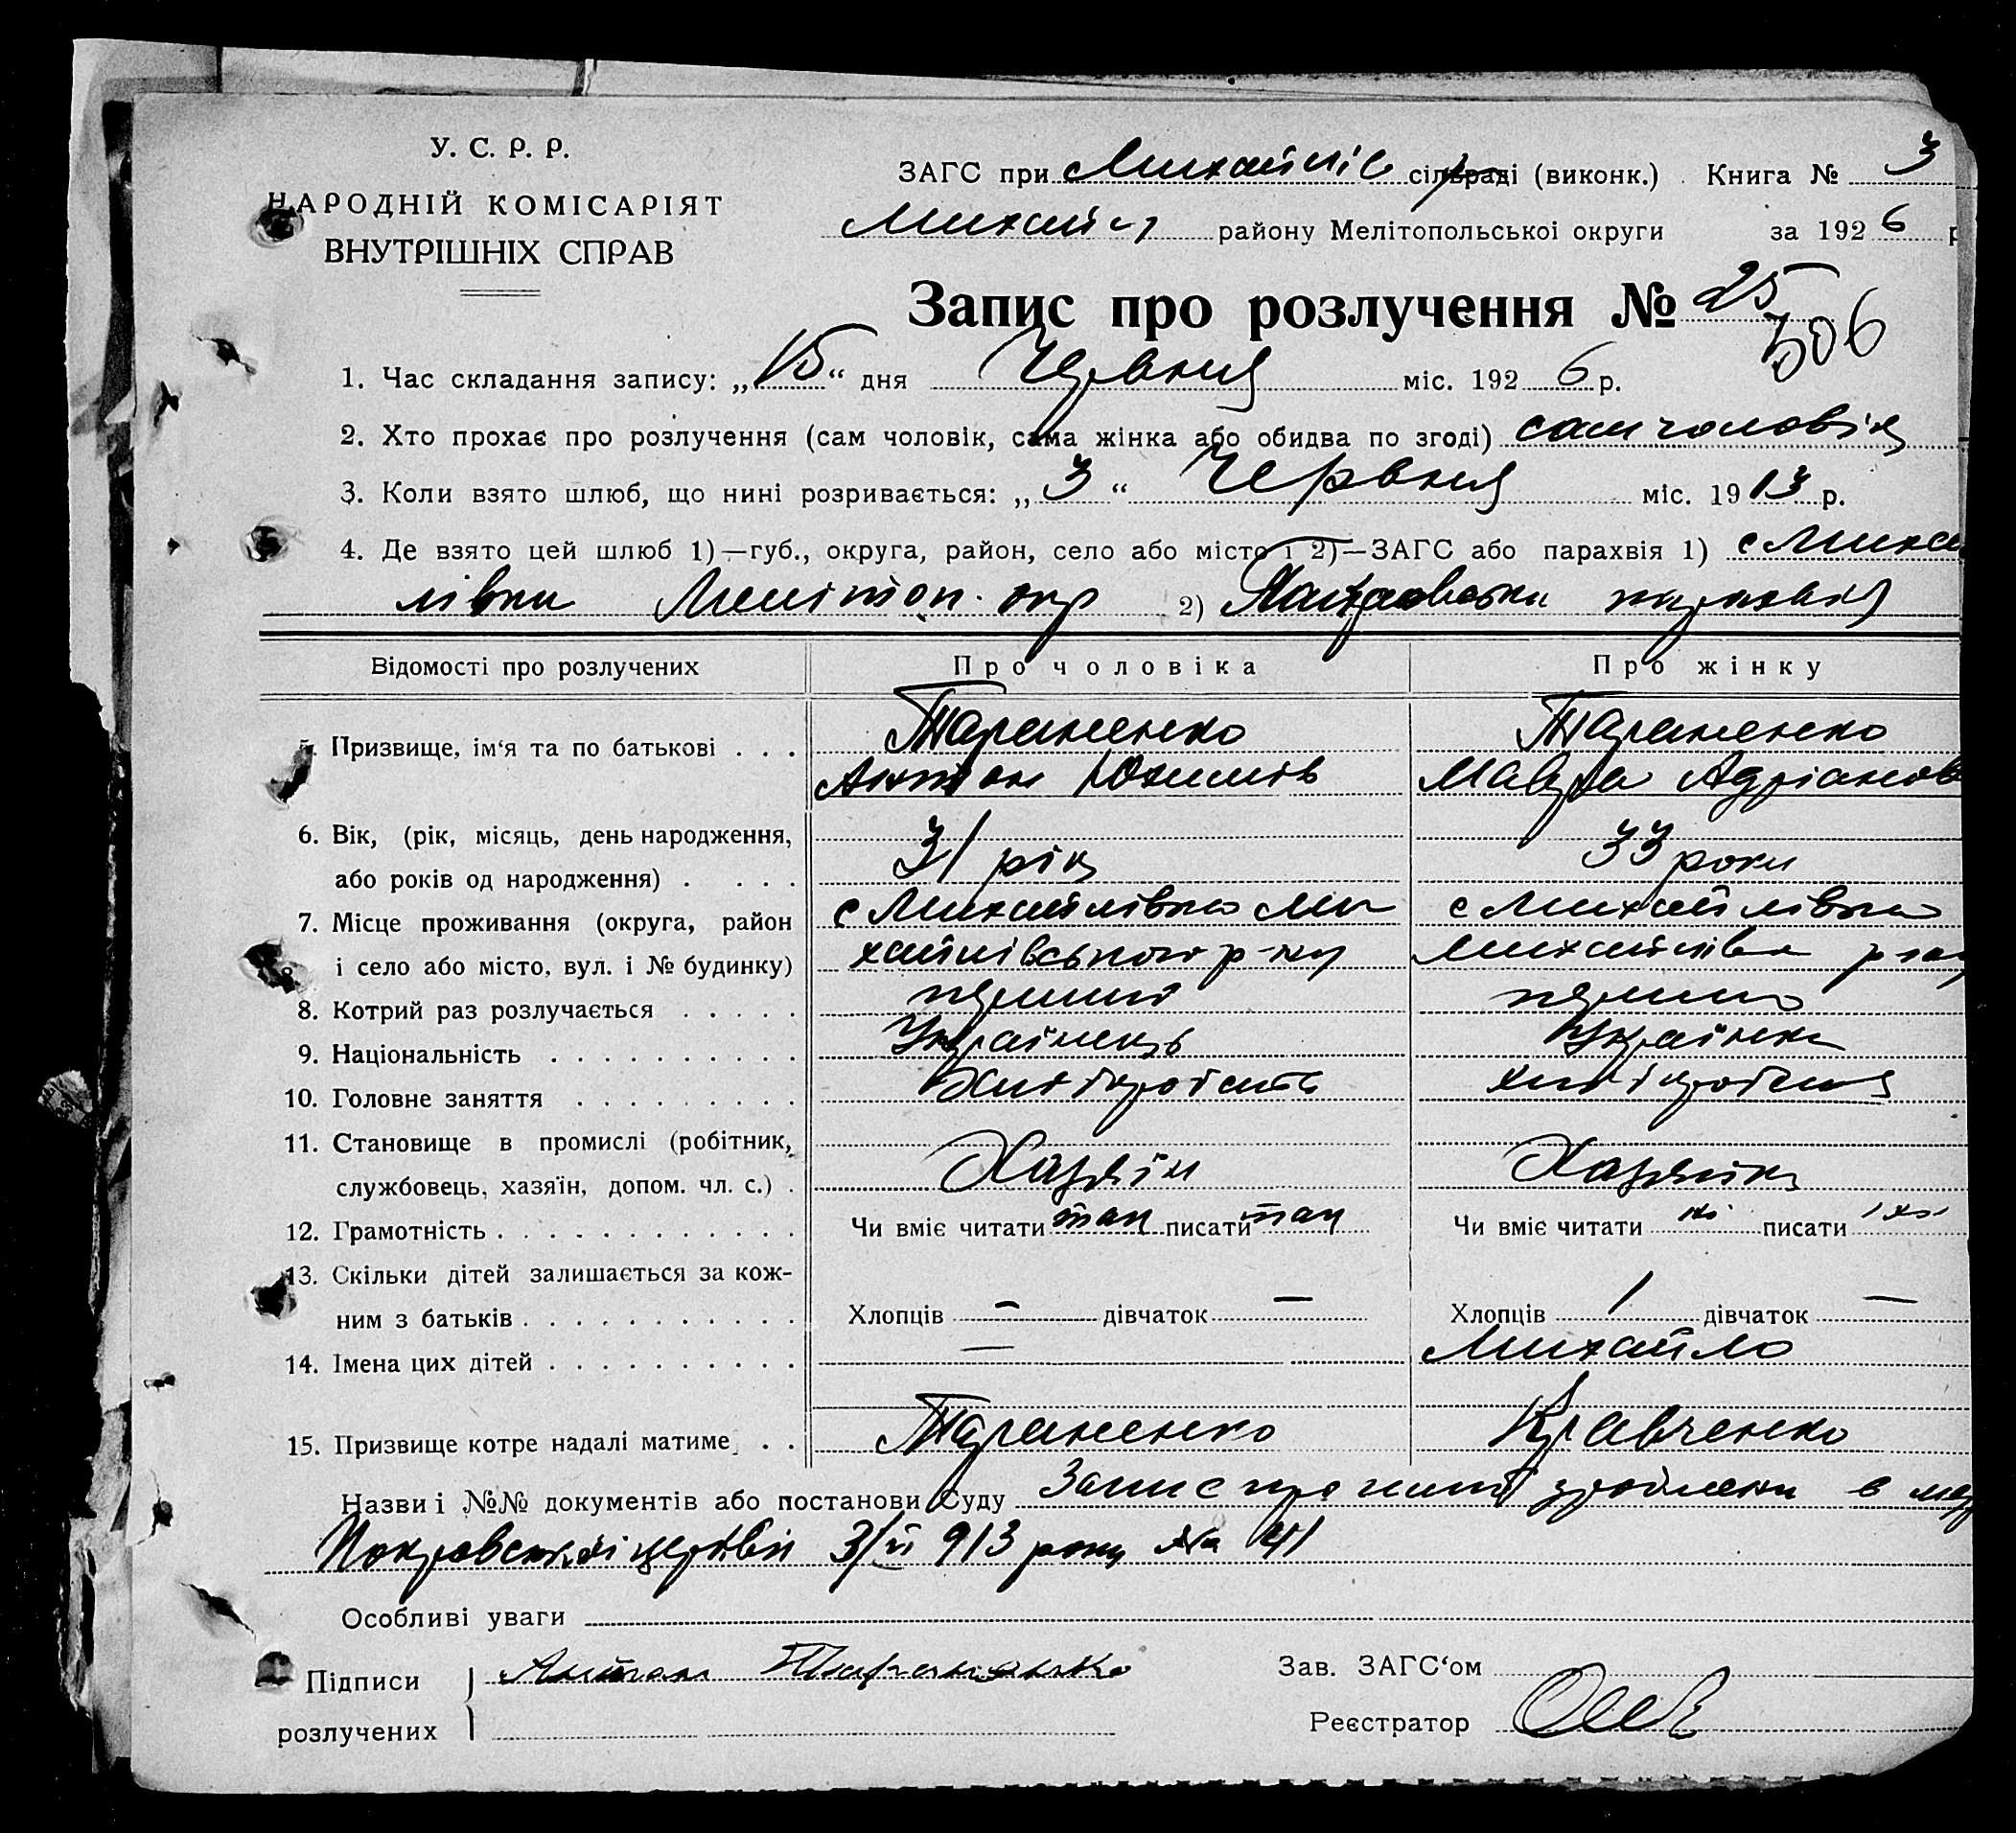 У. С. Р. Р.
НАРОДНІЙ КОМІСАРІЯТ
ВНУТРІШНІХ СПРАВ
ЗАГС при Михайлів сільраді (виконк.) Книга № 3
Михайл району Мелітопольськоі округи за 1926 р
Запис про розлучення № 25
306
1. Час складання запису: „15“ дня Червня міс. 1926 р.
2. Хто прохає про розлучення (сам чоловік, сама жінка або обидва по згоді) сам чоловік
3. Коли взято шлюб, що нині розривається: „3“ Червня міс. 1913 р.
4. Де взято цей шлюб 1)—губ., округа, район, село або місто і 2)—ЗАГС або парахвія 1) с Михай
лівки Мелітоп. окр 2) парахвія
Відомості про розлучених Про чоловіка Про жінку
5. Призвище, ім‘я та по батькові . . . Тараненко Тараненко
Антон Юхимів Мавра Адріанов
6. Вік, (рік, місяць, день народження,
або років од народження) . . . . 31 рік 33 роки
7. Місце проживання (округа, район с Михайлівка Ми с Михайлівка
і село або місто, вул. і № будинку) хайлівського р-ну Михайлівк р-ну
8. Котрий раз розлучається . . . . . перший перший
9. Національність . . . . . . . . . . Українець Українка
10. Головне заняття . . . . . . . . . Хліборобить хліборобиця
11. Становище в промислі (робітник,
службовець, хазяїн, допом. чл. с.) . Хазяїн Хазяйка
12. Грамотність . . . . . . . . . . . . . Чи вміє читати так писати так Чи вміє читати ні писати ні
13. Скільки дітей залишається за кож-
ним з батьків . . . . . . . . . . . Хлопців — дівчаток — Хлопців 1 дівчаток —
14. Імена цих дітей . . . . . . . . . . — Михайло
15. Призвище котре надалі матиме . . Тараненко Кравченко
Назви і №№ документів або постанови Суду Запис про шлюб зроблени в
Покровській церкві 3/VI 913 року № 41
Особливі уваги
Підписи Антон Тараненко Зав. ЗАГС‘ом
розлучених Реєстратор